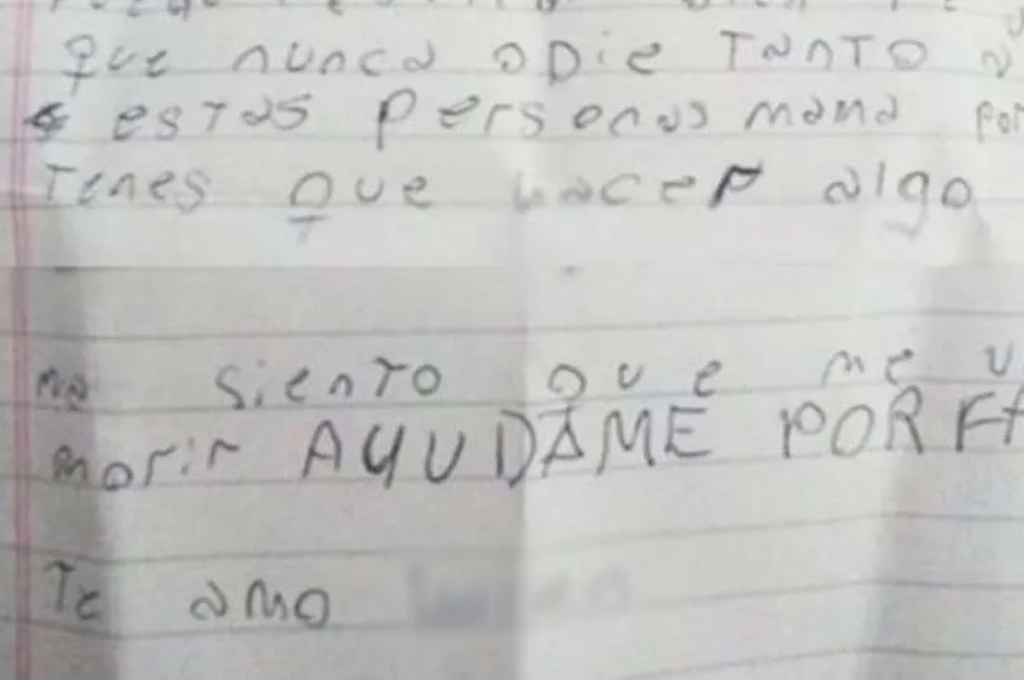 que nunca odie TanTO a
esTas personas mama por
Tenes que hacer algo
ma siento que me v
morir AYUDAME PORFA
Te amo